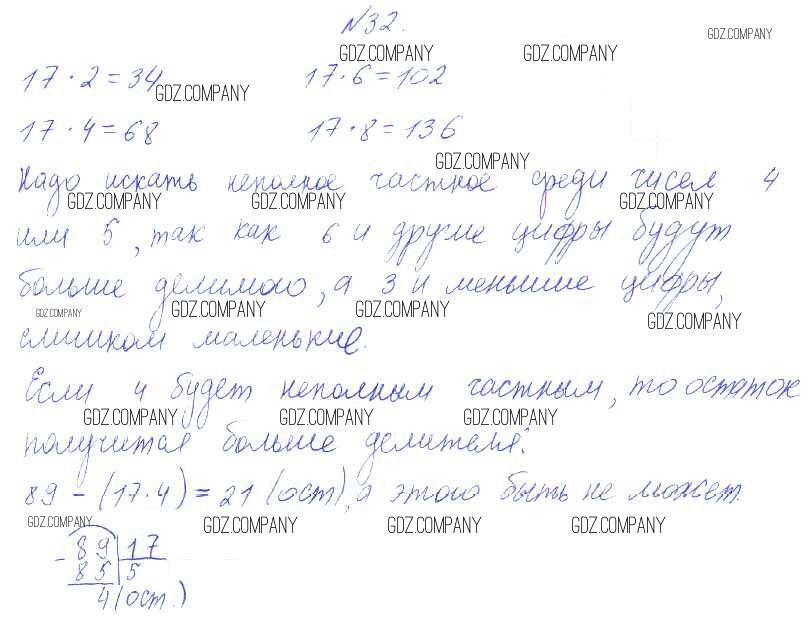 №32.
GDZ.COMPANY GDZ.COMPANY GDZ.COMPANY
17 · 2 = 34 17 · 6 = 102
GDZ.COMPANY
17 · 4 = 68 17 · 8 = 136
GDZ.COMPANY
Надо искать неполное частное среди чисел 4
GDZ.COMPANY GDZ.COMPANY GDZ.COMPANY
или 5, так как 6 и другие цифры будут
больше делимого, а 3 и меньшие цифры,
GDZ.COMPANY GDZ.COMPANY GDZ.COMPANY GDZ.COMPANY
слишком маленькие.
Если 4 будет неполным частным, то остаток
GDZ.COMPANY GDZ.COMPANY GDZ.COMPANY
получится больше делителя:
89 - (17·4) = 21 (ост), а этого быть не может.
GDZ.COMPANY GDZ.COMPANY GDZ.COMPANY GDZ.COMPANY
- 89 | 17
85 | 5
4 (ост.)